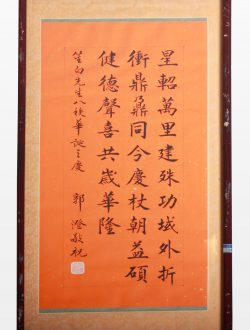 星軺萬里建殊功域外折
衝鼎鼐同今慶杖朝益碩
健德聲喜共歲華隆
笙白先生八秩華誕之慶
郭澄敬祝